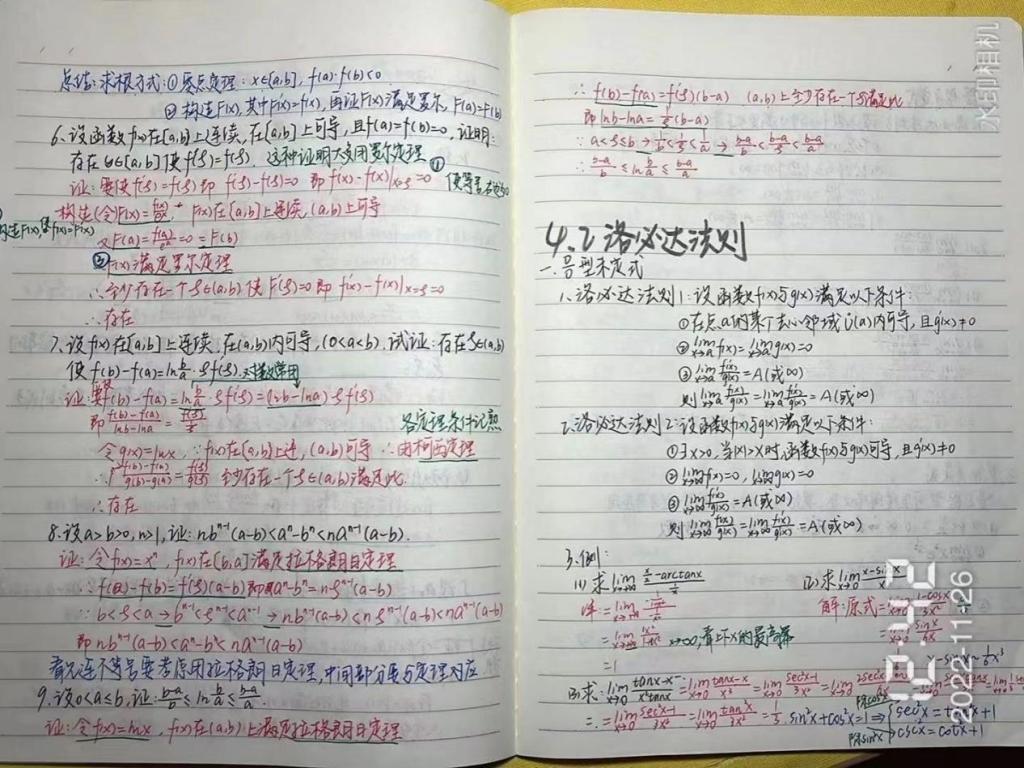 总结:求根方式:①零点定理:x∈[a,b],f(a)·f(b)<0
②构造F(x),其中F'(x)=f(x),再证F(x)满足罗尔,F(a)=F(b)
6、设函数f(x)在[a,b]上连续,在(a,b]上可导,且f(a)=f(b)=0,证明:
存在ξ∈(a,b]使f'(ξ)=f(ξ),这种证明大多用罗尔定理
证:要使f'(ξ)=f(ξ)即f'(ξ)-f(ξ)=0 即f'(x)-f(x)|x=ξ=0 ① 使等号右边为0
构造(令)F(x)=f(x)/e^x,F(x)在[a,b]上连续,(a,b)上可导
构造F(x),
又F(a)=f(a)/e^a=0=F(b)
②F(x)满足罗尔定理
∴至少存在一个ξ∈(a,b)使F'(ξ)=0即f'(x)-f(x)|x=ξ=0
∴存在
7、设f(x)在[a,b]上连续,在(a,b)内可导,(0<a<b),试证:存在ξ∈(a,b)
使f(b)-f(a)=ln b/a·ξf'(ξ).
证:要f(b)-f(a)=ln b/a·ξf'(ξ)=(lnb-lna)ξf'(ξ)
即 f(b)-f(a)/lnb-lna=f'(ξ)/(1/ξ) 各定理条件记熟
令g(x)=lnx,∵f(x)在[a,b]上连,(a,b)可导 ∴由柯西定理
∴f(b)-f(a)/g(b)-g(a)=f'(ξ)/g'(ξ) 至少存在一个ξ∈(a,b)满足此
∴存在
8、设a>b>0,n>1,证:nb^(n-1)(a-b)<a^n-b^n<na^(n-1)(a-b).
证:令f(x)=x^n,f(x)在[b,a]满足拉格朗日定理
∴f(a)-f(b)=f'(ξ)(a-b)即a^n-b^n=nξ^(n-1)(a-b)
∵b<ξ<a→b^(n-1)<ξ^(n-1)<a^(n-1)→nb^(n-1)(a-b)<nξ^(n-1)(a-b)<na^(n-1)(a-b)
即nb^(n-1)(a-b)<a^n-b^n<na^(n-1)(a-b)
看见连不等号要考虑用拉格朗日定理,中间部分要与定理对应
9、设0<a≤b,证:b-a/b≤ln b/a≤b-a/a.
证:令f(x)=lnx,f(x)在(a,b)上满足拉格朗日定理
∴f(b)-f(a)=f'(ξ)(b-a) (a,b)上至少存在一个ξ满足此
即lnb-lna=1/ξ(b-a)
∵a<ξ≤b→1/b<1/ξ<1/a→b-a/b<b-a/ξ<b-a/a
∴b-a/b≤ln b/a≤b-a/a
4.2洛必达法则
一、0/0型未定式
1、洛必达法则1:设函数f(x)与g(x)满足以下条件:
①在点a的某个去心邻域Ů(a)内可导,且g'(x)≠0
②lim x→a f(x)=lim x→a g(x)=0
③lim x→a f'(x)/g'(x)=A(或∞)
则lim x→a f(x)/g(x)=lim x→a f'(x)/g'(x)=A(或∞)
2、洛必达法则2:设函数f(x)与g(x)满足以下条件:
①∃X>0,当|x|>X时,函数f(x)与g(x)可导,且g'(x)≠0
②lim x→∞ f(x)=0,lim x→∞ g(x)=0
③lim x→∞ f'(x)/g'(x)=A(或∞)
则lim x→∞ f(x)/g(x)=lim x→∞ f'(x)/g'(x)=A(或∞)
3、例:
(1)求lim π/2-arctanx/(1/x) (2)求lim x→0
解:原式=lim x→0 1-cosx/3x²
=lim x→∞ x²/1+x² x→∞,看x的最高幂
=lim x→0 sinx/6x
=1
x-sinx~1/6x³
(3)求:lim x→0 tanx-x/x²tanx=lim x→0 tanx-x/x³=lim x→0 sec²x-1/3x²
∴=lim x→0 sec²x-1/3x²=lim x→0 tan²x/3x²=1/3. sin²x+cos²x=1⇒
除cos²x sec²x=tan²x+1
除sin²x csc²x=cot²x+1
12:02
2022-11-26
水印相机